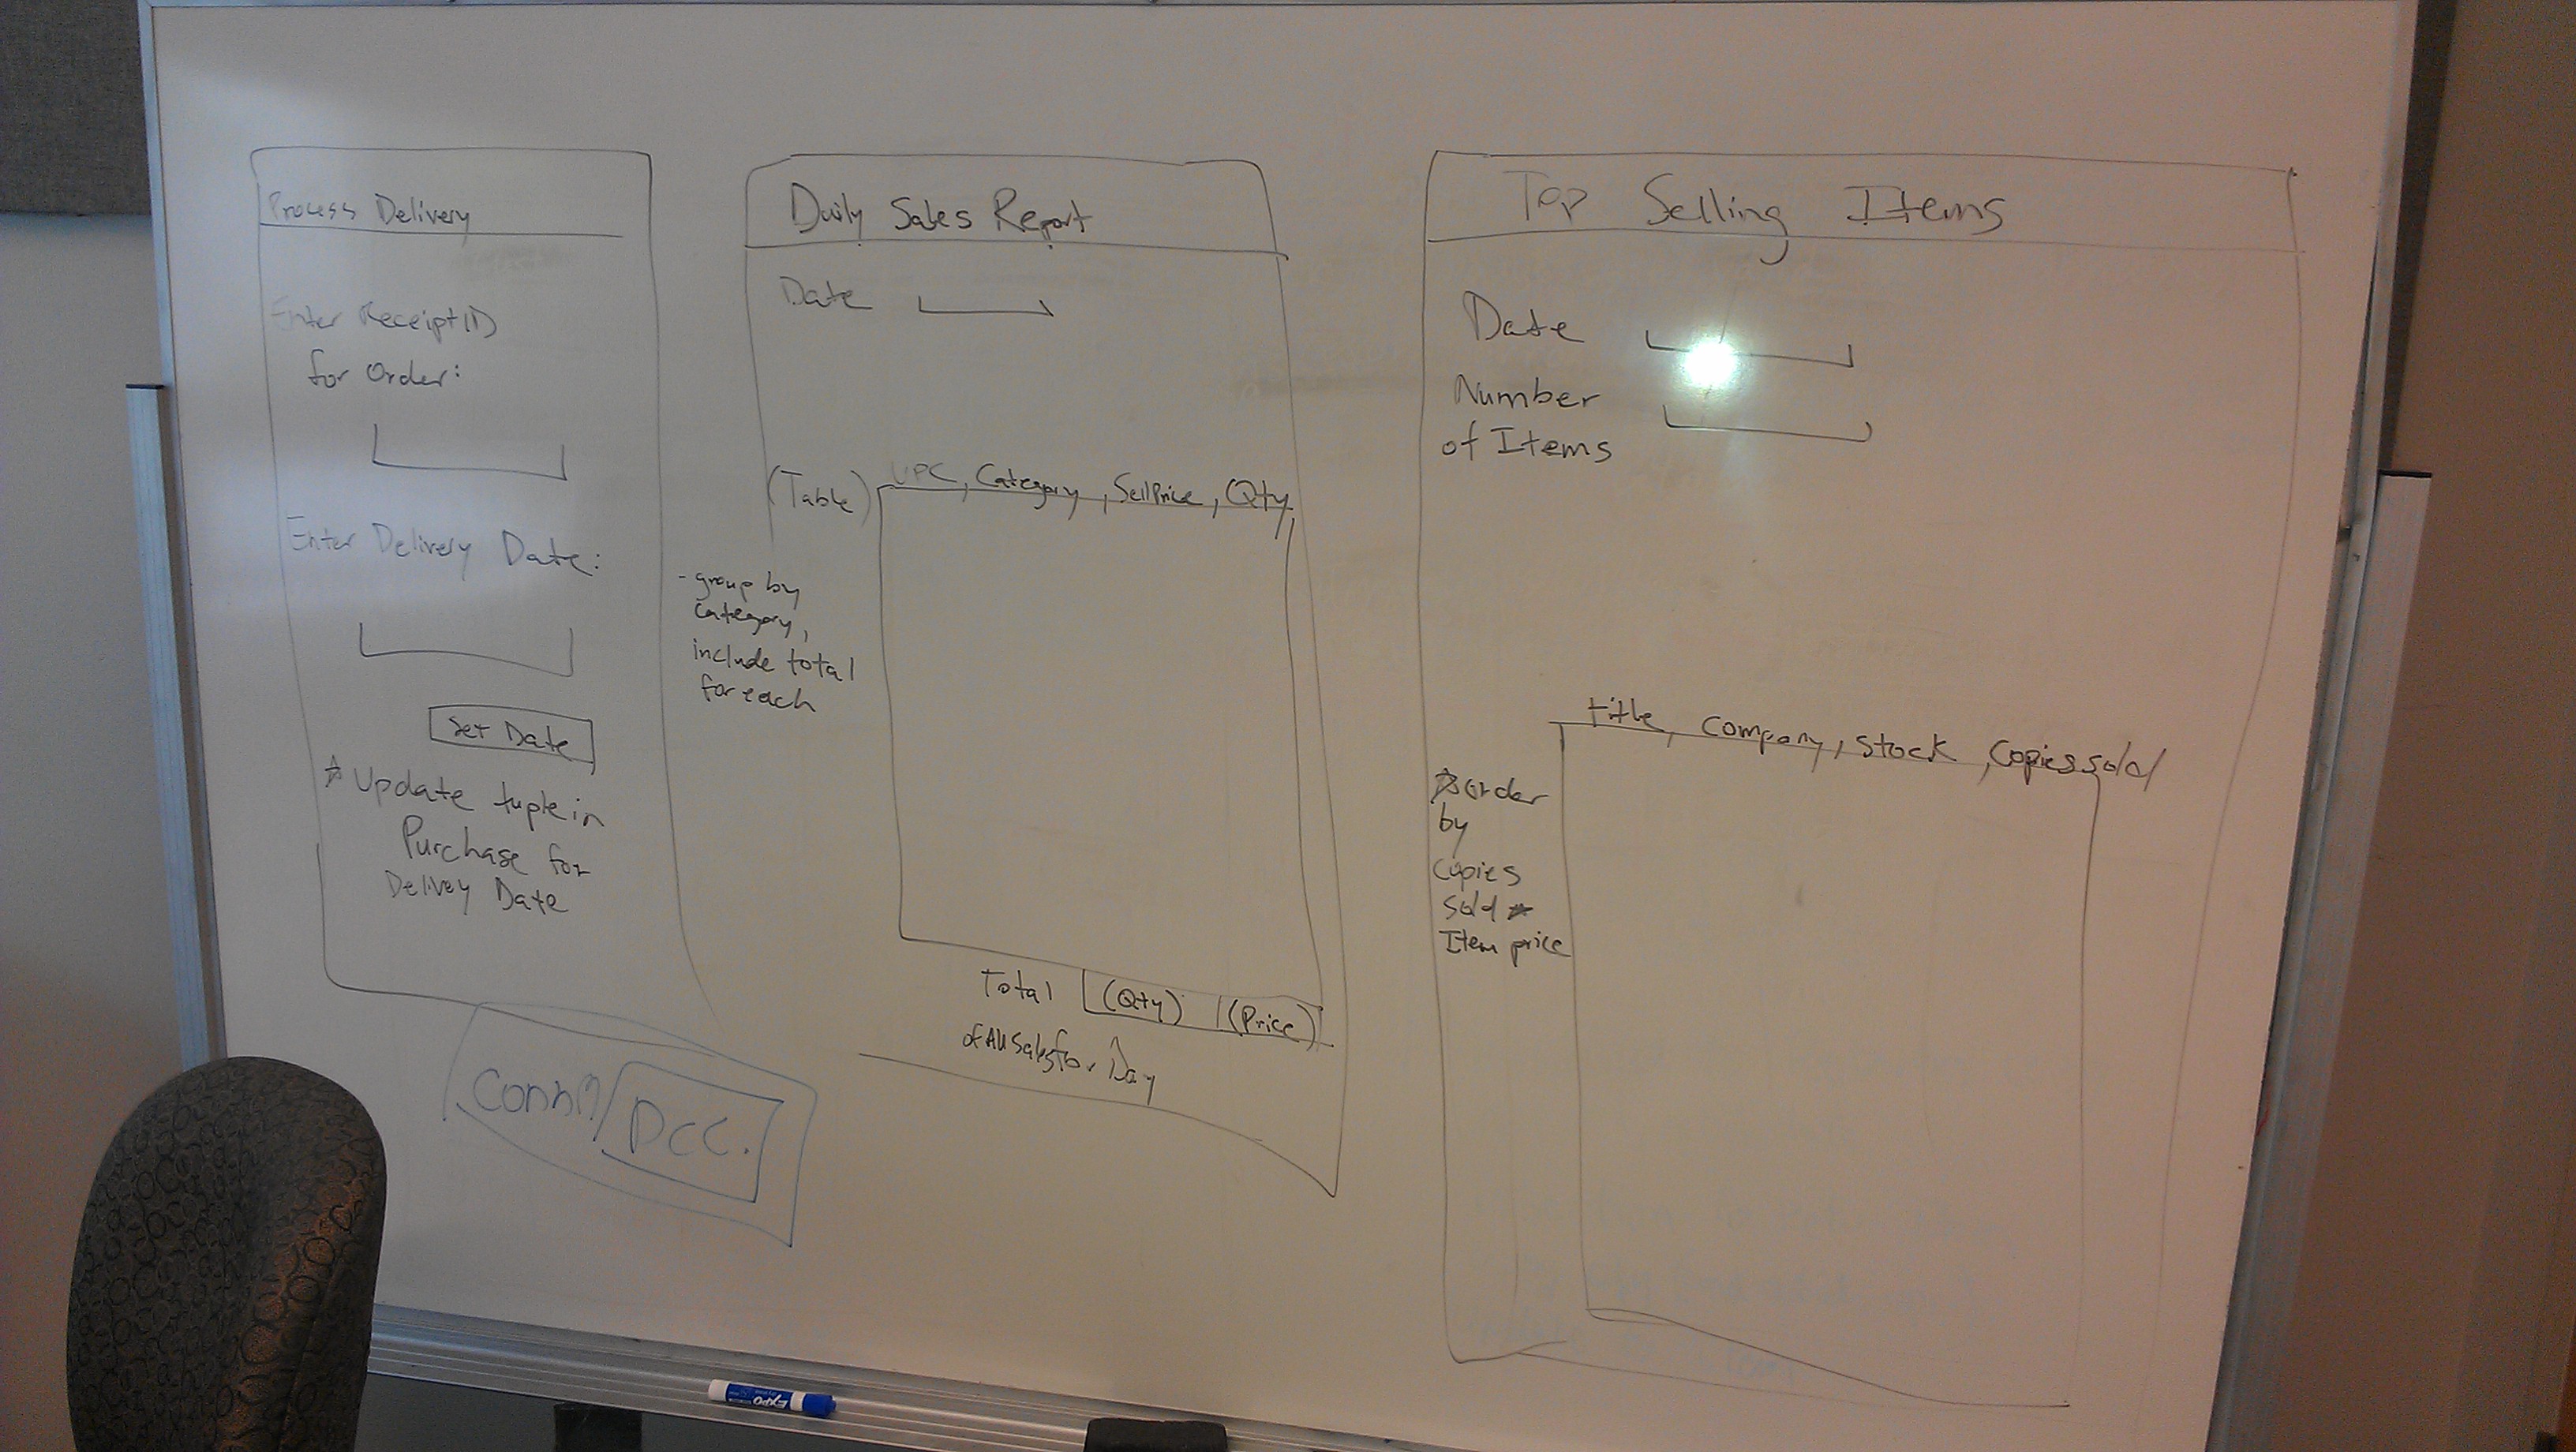 Process Delivery
Enter ReceiptID
for Order:
Enter Delivery Date:
Set Date
☆ Update tuple in
Purchase for
Delivey Date
Daily Sales Report
Date
(Table) UPC, Category, SellPrice, Qty
- group by
Category,
include total
for each
Total (Qty) (Price)
of All Sales for Day
DCC.
Top Selling Items
Date
Number
of Items
title, Company, Stock, Copies sold
☆ order
by
Copies
sold *
Item price
EXPO